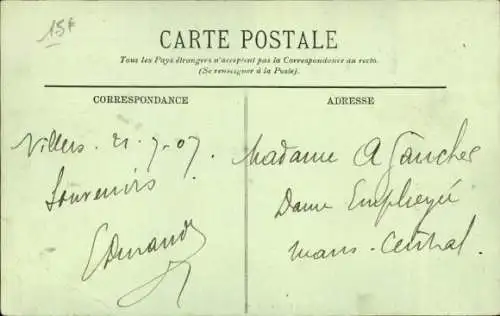 15f
CARTE POSTALE
Tous les Pays étrangers n'acceptent pas la Correspondance au recto.
(Se renseigner à la Poste).
CORRESPONDANCE
ADRESSE
Villers. 21-7-07.
Souvenirs
EDurand
Madame A Gaucher
Dame Employée
Mans-Central.